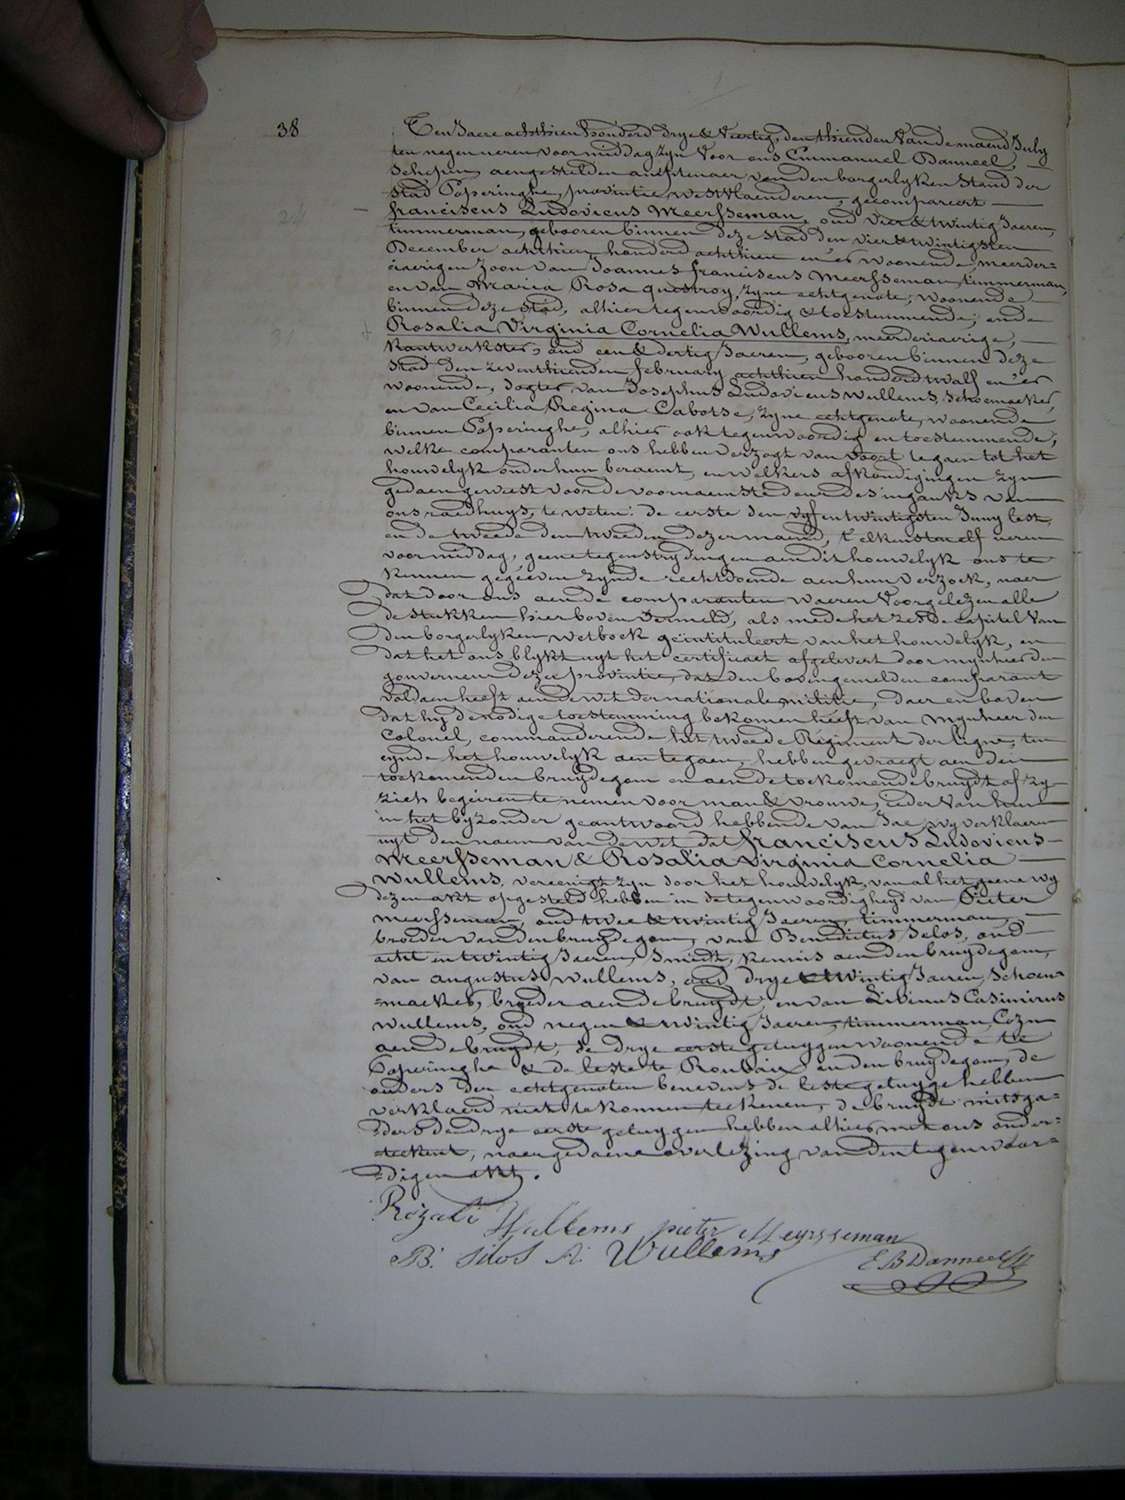 38
Ten Jaere achthien honderd drye & veertig, den thienden van de maend July
ten negen uren voormiddag zyn voor ons Emmanuel Danneel,
Schepen, aengestelden ambtenaer van den borgerlyken stand der
stad Poperinghe, provintie westvlaenderen, gecompareert
franciscus Ludovicus Meersseman, oud vier & twintig Jaeren,
timmerman, gebooren binnen deze stad den vier & twintigsten
December achthien honderd achthien en er woonende, meerder-
jaerigen zoon van Joannes franciscus Meersseman, timmerman,
en van Maria Rosa questroy, zyne echtgenote, woonende
binnen deze stad, alhier tegenwoordig & toestemmende; ende
Rosalia Virginia Cornelia Wullems, meerderjaerige,
kantwerkster, oud een & dertig Jaeren, gebooren binnen deze
stad den zeventhienden february achthien honderd twalf en er
woonende, dogter van Josephus Ludovicus wullems, schoemaeker,
en van Cecilia Regina Cabotse, zyne echtgenote, woonende
binnen Poperinghe, alhier ook tegenwoordig en toestemmende,
welke comparanten ons hebben verzogt van voort te gaen tot het
houwelyk onder hun beraemt, en welkers afkondigingen zyn
gedaen geweest voor de voornaemste deure des ingangs van
ons raedhuys, te weten: de eerste den vyf en twintigsten Juny lest,
en de tweede den tweeden dezer maend, t'elkenstond elf uren
voormiddag, geene tegenstrydingen aen dit houwelyk ons te
kennen gegeeven zynde rechtdoende aen hun verzoek, naer
dat door ons aen de comparanten waeren voorgelezen alle
de stukken hierboven vermeld, als mede het zesde capitel van
den borgerlyken wetboek geintituleert van het houwelyk, en
dat het ons blykt uyt het certificaet afgelevert door mynheer den
gouverneur dezer provintie, dat den bovengemelden comparant
voldaen heeft aen de wet der nationale militie, daer en boven
dat hy de nodige toestemming bekomen heeft van Mynheer den
Colonel, commanderende het tweede Regiment der ligne, ten
eynde het houwelyk aen te gaen, hebben gevraegt aen den
toekomenden bruydegom en aen de toekomende bruydt of zy
zich begeiren te nemen voor man & vrouwe, ieder van hun
in het byzonder geantwoord hebbende van Jae, wy verklaeren
uyt den naem van de wet dat franciscus Ludovicus
Meersseman & Rosalia Virginia Cornelia
Wullems, vereenigt zyn door het houwelyk, van al het geene wy
dezen akt opgesteld hebben in de tegenwoordigheyd van Pieter
meersseman, oud twee & twintig Jaeren, timmerman,
broeder van den bruydegom, van Benedictus Silos, oud
acht en twintig Jaeren, Smidt, kennis aen den bruydegom,
van augustus wullems, oud drye & twintig Jaeren, Schoen-
=maeker, broeder aen de bruydt, en van Livinus Casimirus
wullems, oud negen & twintig Jaeren, timmerman, Cozyn
aen de bruydt, de drye eerste getuygen woonende te
Poperinghe & de leste te Roubaix en den bruydegom, de
ouders der echtgenoten benevens de leste getuyge hebben
verklaerd niet te konnen teekenen, de bruydt mitsga-
=ders de drye eerste getuygen hebben alhier met ons onder-
=teekent, naer gedaene overlezing van den tegenwoor-
=digen akt.
Rozali Wullems pieter Meyrsseman
B. silos A. Wullems
E B Danneel